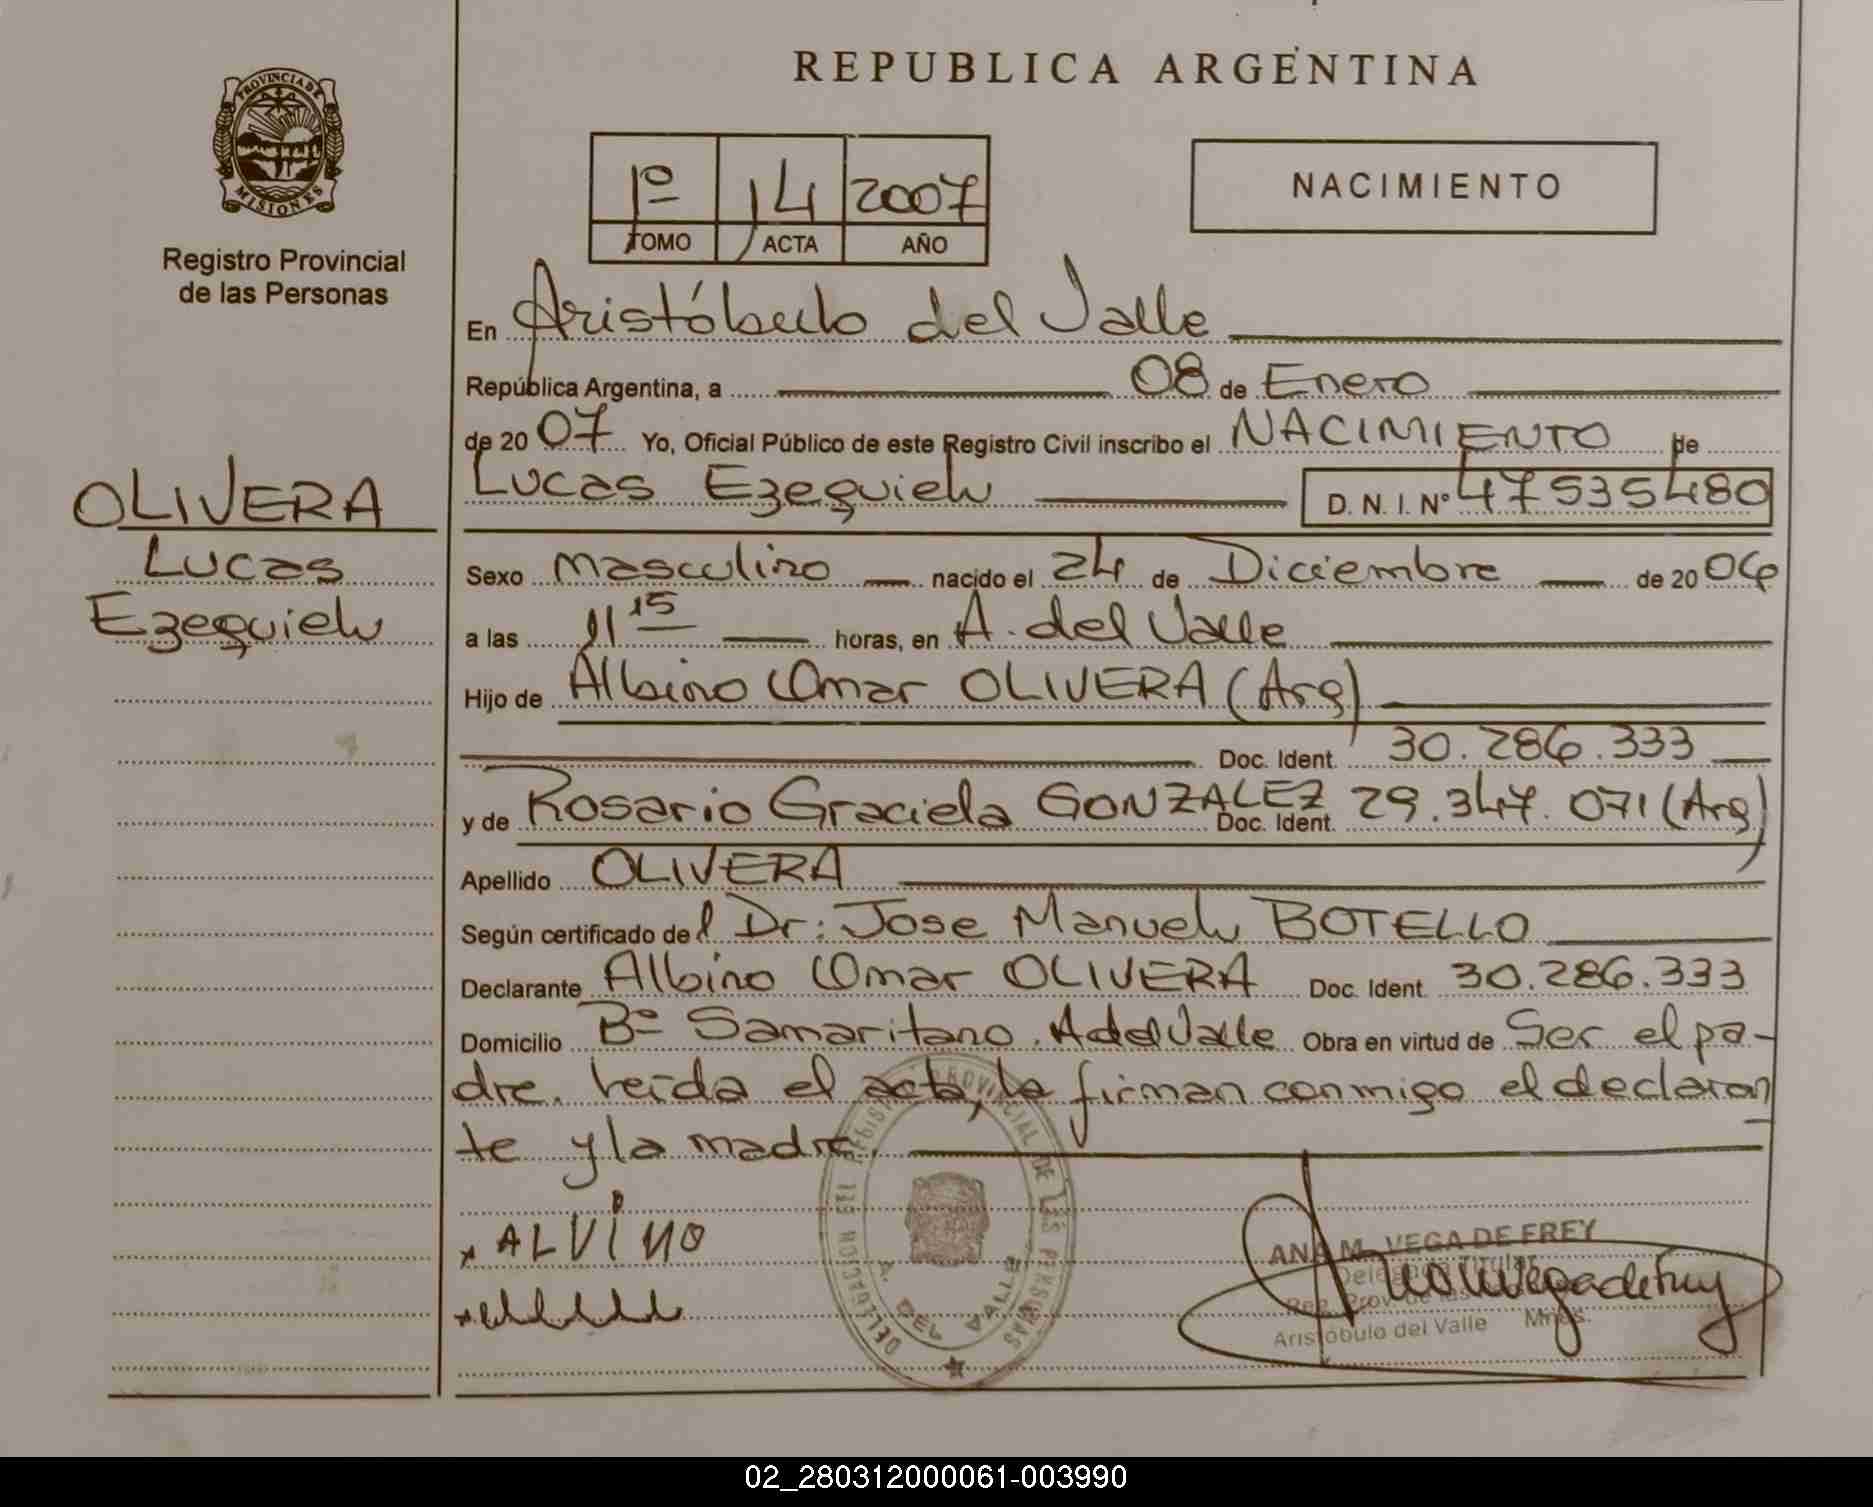 REPUBLICA ARGENTINA
PROVINCIA DE
MISIONES
Registro Provincial
de las Personas
1º 14 2007
TOMO ACTA AÑO
NACIMIENTO
En Aristóbulo del Valle
República Argentina, a 08 de Enero
de 2007 Yo, Oficial Público de este Registro Civil inscribo el NACIMIENTO de
Lucas Ezequiel D. N. I. Nº 47535480
OLIVERA
Lucas
Ezequiel
Sexo masculino nacido el 24 de Diciembre de 2006
a las 11 15 horas, en A. del Valle
Hijo de Albino Omar OLIVERA (Arg)
Doc. Ident. 30.286.333
y de Rosario Graciela GONZALEZ Doc. Ident. 29.347.071 (Arg)
Apellido OLIVERA
Según certificado del Dr: Jose Manuel BOTELLO
Declarante Albino Omar OLIVERA Doc. Ident. 30.286.333
Domicilio Bº Samaritano. A del Valle Obra en virtud de Ser el pa-
dre. Leída el acta, la firman conmigo el declaran
te y la madre.
x ALViNO
x
DELEGACION DEL REGISTRO PROVINCIAL DE LAS PERSONAS
A. DEL VALLE
ANA M. VEGA DE FREY
Delegada Titular
Reg. Prov. de las
Aristóbulo del Valle Mnes.
02_280312000061-003990